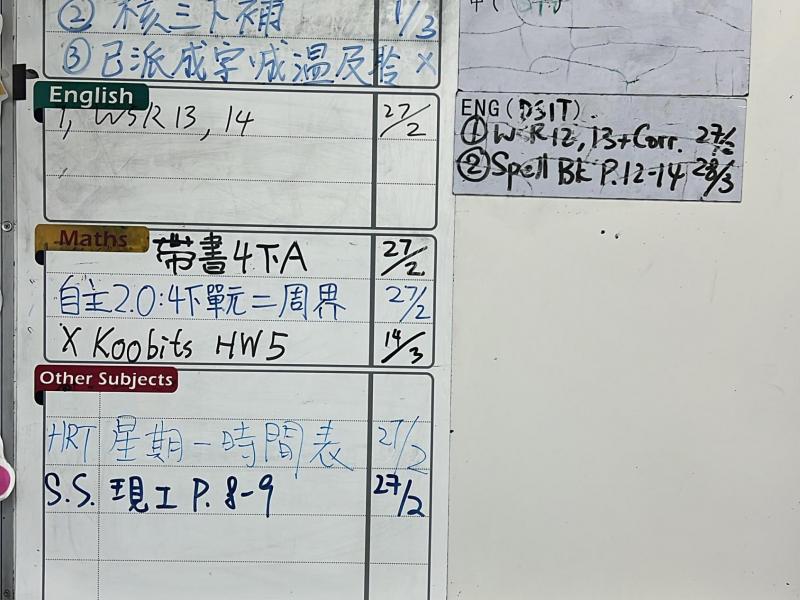 ② 核三下補 1/3
③ 已派成字成溫及聆 X
English
1, WS R13, 14 27/2
Maths
帶書4下A 27/2
自主2.0:4下單元二周界 27/2
X Koobits HW5 14/3
Other Subjects
HRT 星期一時間表 27/2
S.S. 現工 P. 8-9 27/2
ENG (DSIT)
① WS R12, 13+Corr. 27/2
② Spell BK P.12-14 28/3